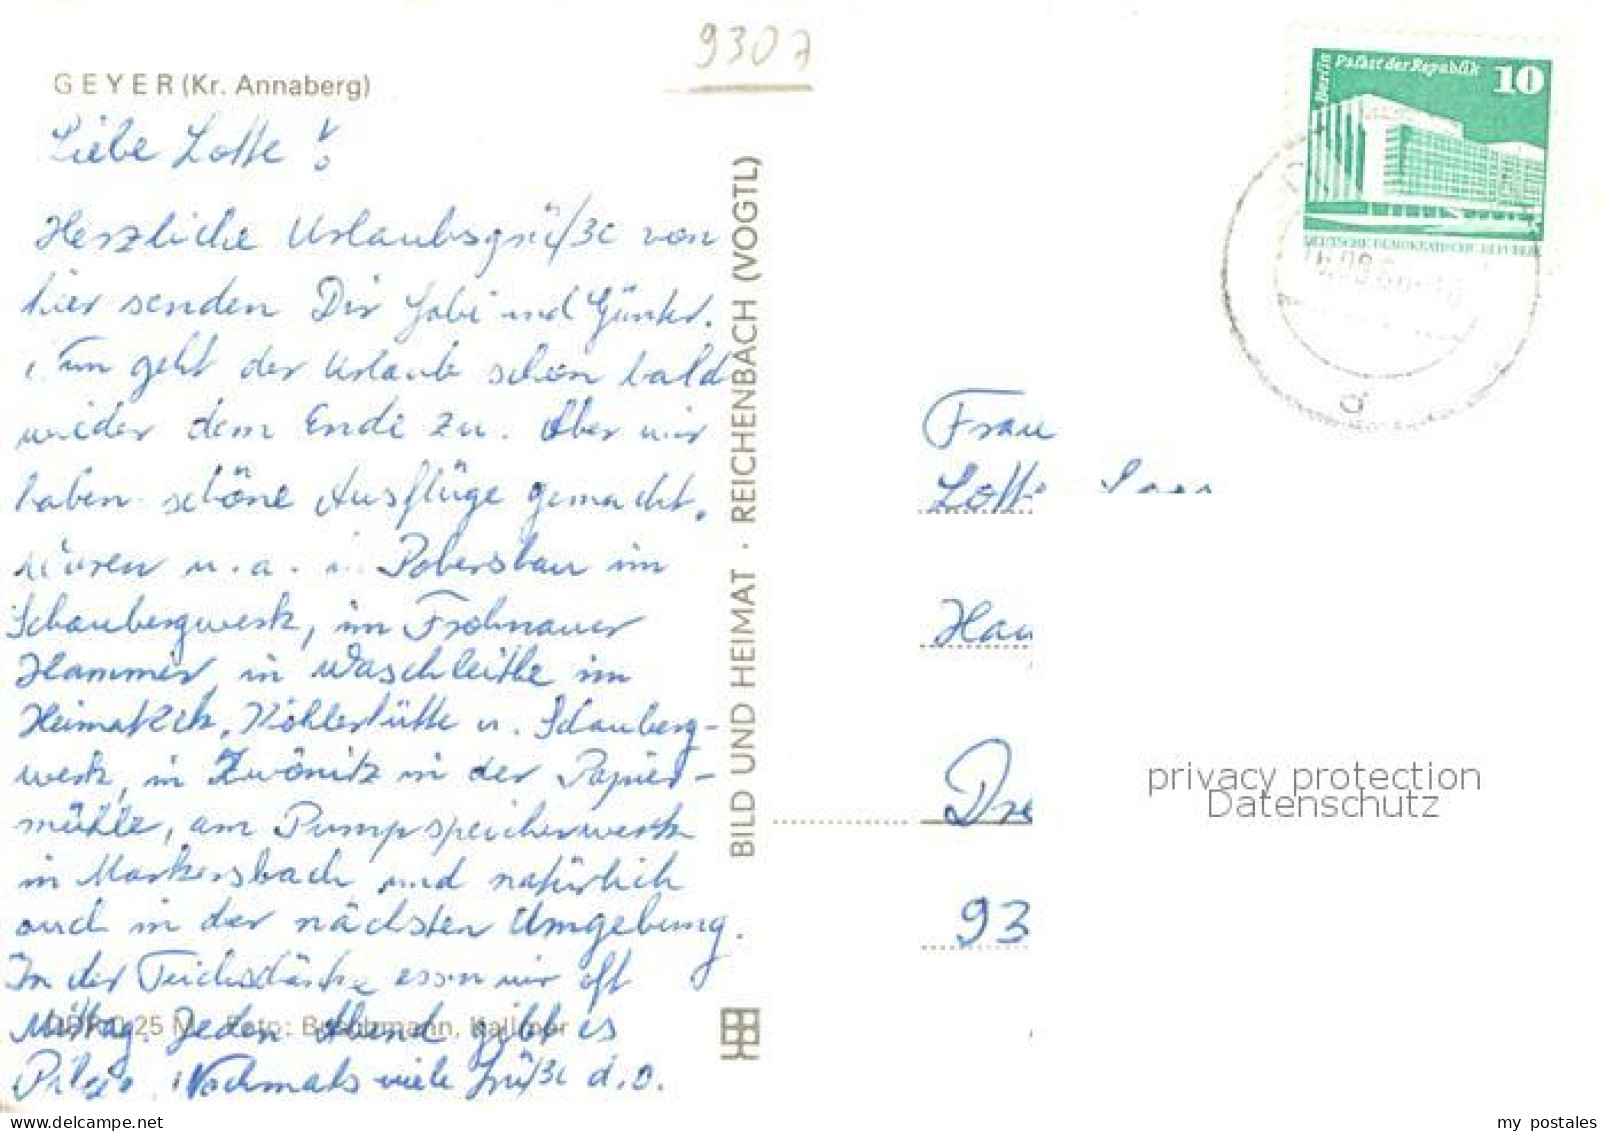 9307
GEYER (Kr. Annaberg)
Liebe Lotte!
Herzliche Urlaubsgrüße von
hier senden Dir Gabi und Günter.
Nun geht der Urlaub schon bald
wieder dem Ende zu. Aber wir
haben schöne Ausflüge gemacht.
Waren u. a. in Pobershau im
Schaubergwerk, im Frohnauer
Hammer, in Waschleithe im
Heimateck, Köhlerhütte u. Schauberg-
werk, in Zwönitz in der Papier-
mühle, am Pumpspeicherwerk
in Markersbach und natürlich
auch in der nächsten Umgebung.
In der Teichschänke essen wir oft
Mittag. Jeden Abend gibt es
Pilze. Nochmals viele Grüße d. O.
BILD UND HEIMAT · REICHENBACH (VOGTL)
Berlin Palast der Republik 10
DEUTSCHE DEMOKRATISCHE REPUBLIK
Frau
Lotte
Hau
Dre
93
privacy protection
Datenschutz
oldthing.de
my postales